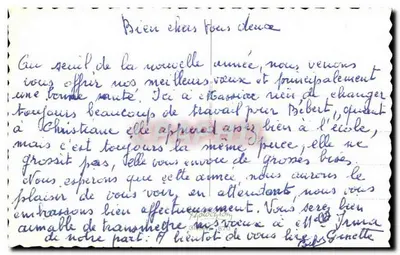 Bien chers Vous deux
Au seuil de la nouvelle année, nous venons
vous offrir nos meilleurs vœux et principalement
une bonne santé. Ici à rien de changer
toujours beaucoup de travail pour Bébert, quant
à Christiane elle apprend assez bien à l'école,
mais c'est toujours la même puce, elle ne
grossit pas, elle vous envoie de grosses bises.
Nous espérons que cette année nous aurons le
plaisir de vous voir, en attendant nous vous
embrassons bien affectueusement. Vous serez bien
aimable de transmettre nos vœux à Mlle Irma
de notre part. A bientôt de vous lire. Ginette